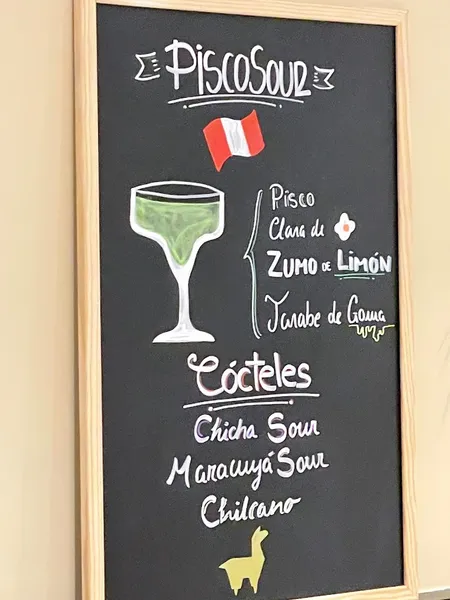 PISCOSOUR
Pisco
Clara de
ZUMO DE LIMÓN
Jarabe de Goma
Cócteles
Chicha Sour
Maracuyá Sour
Chilcano